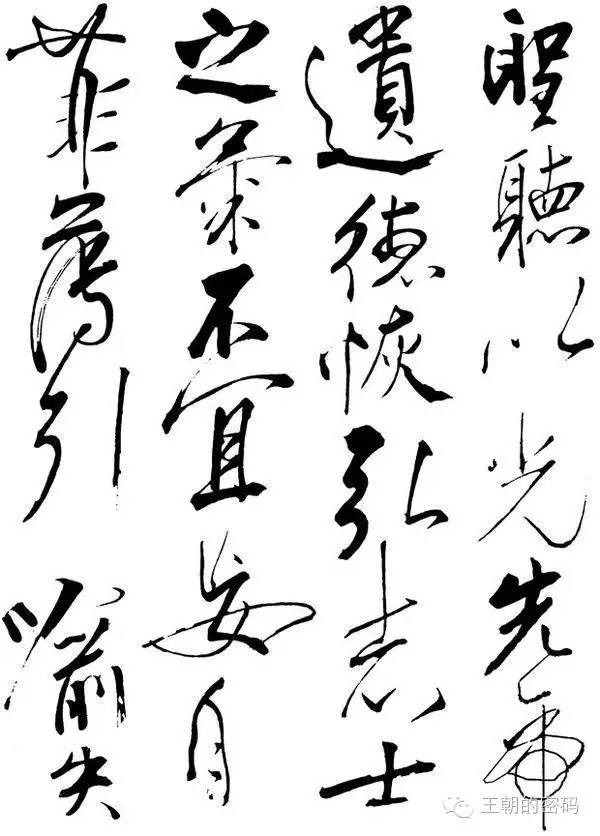 聖聽以光先帝
遺德恢弘志士
之氣不宜妄自
菲薄引喻失
王朝的密码